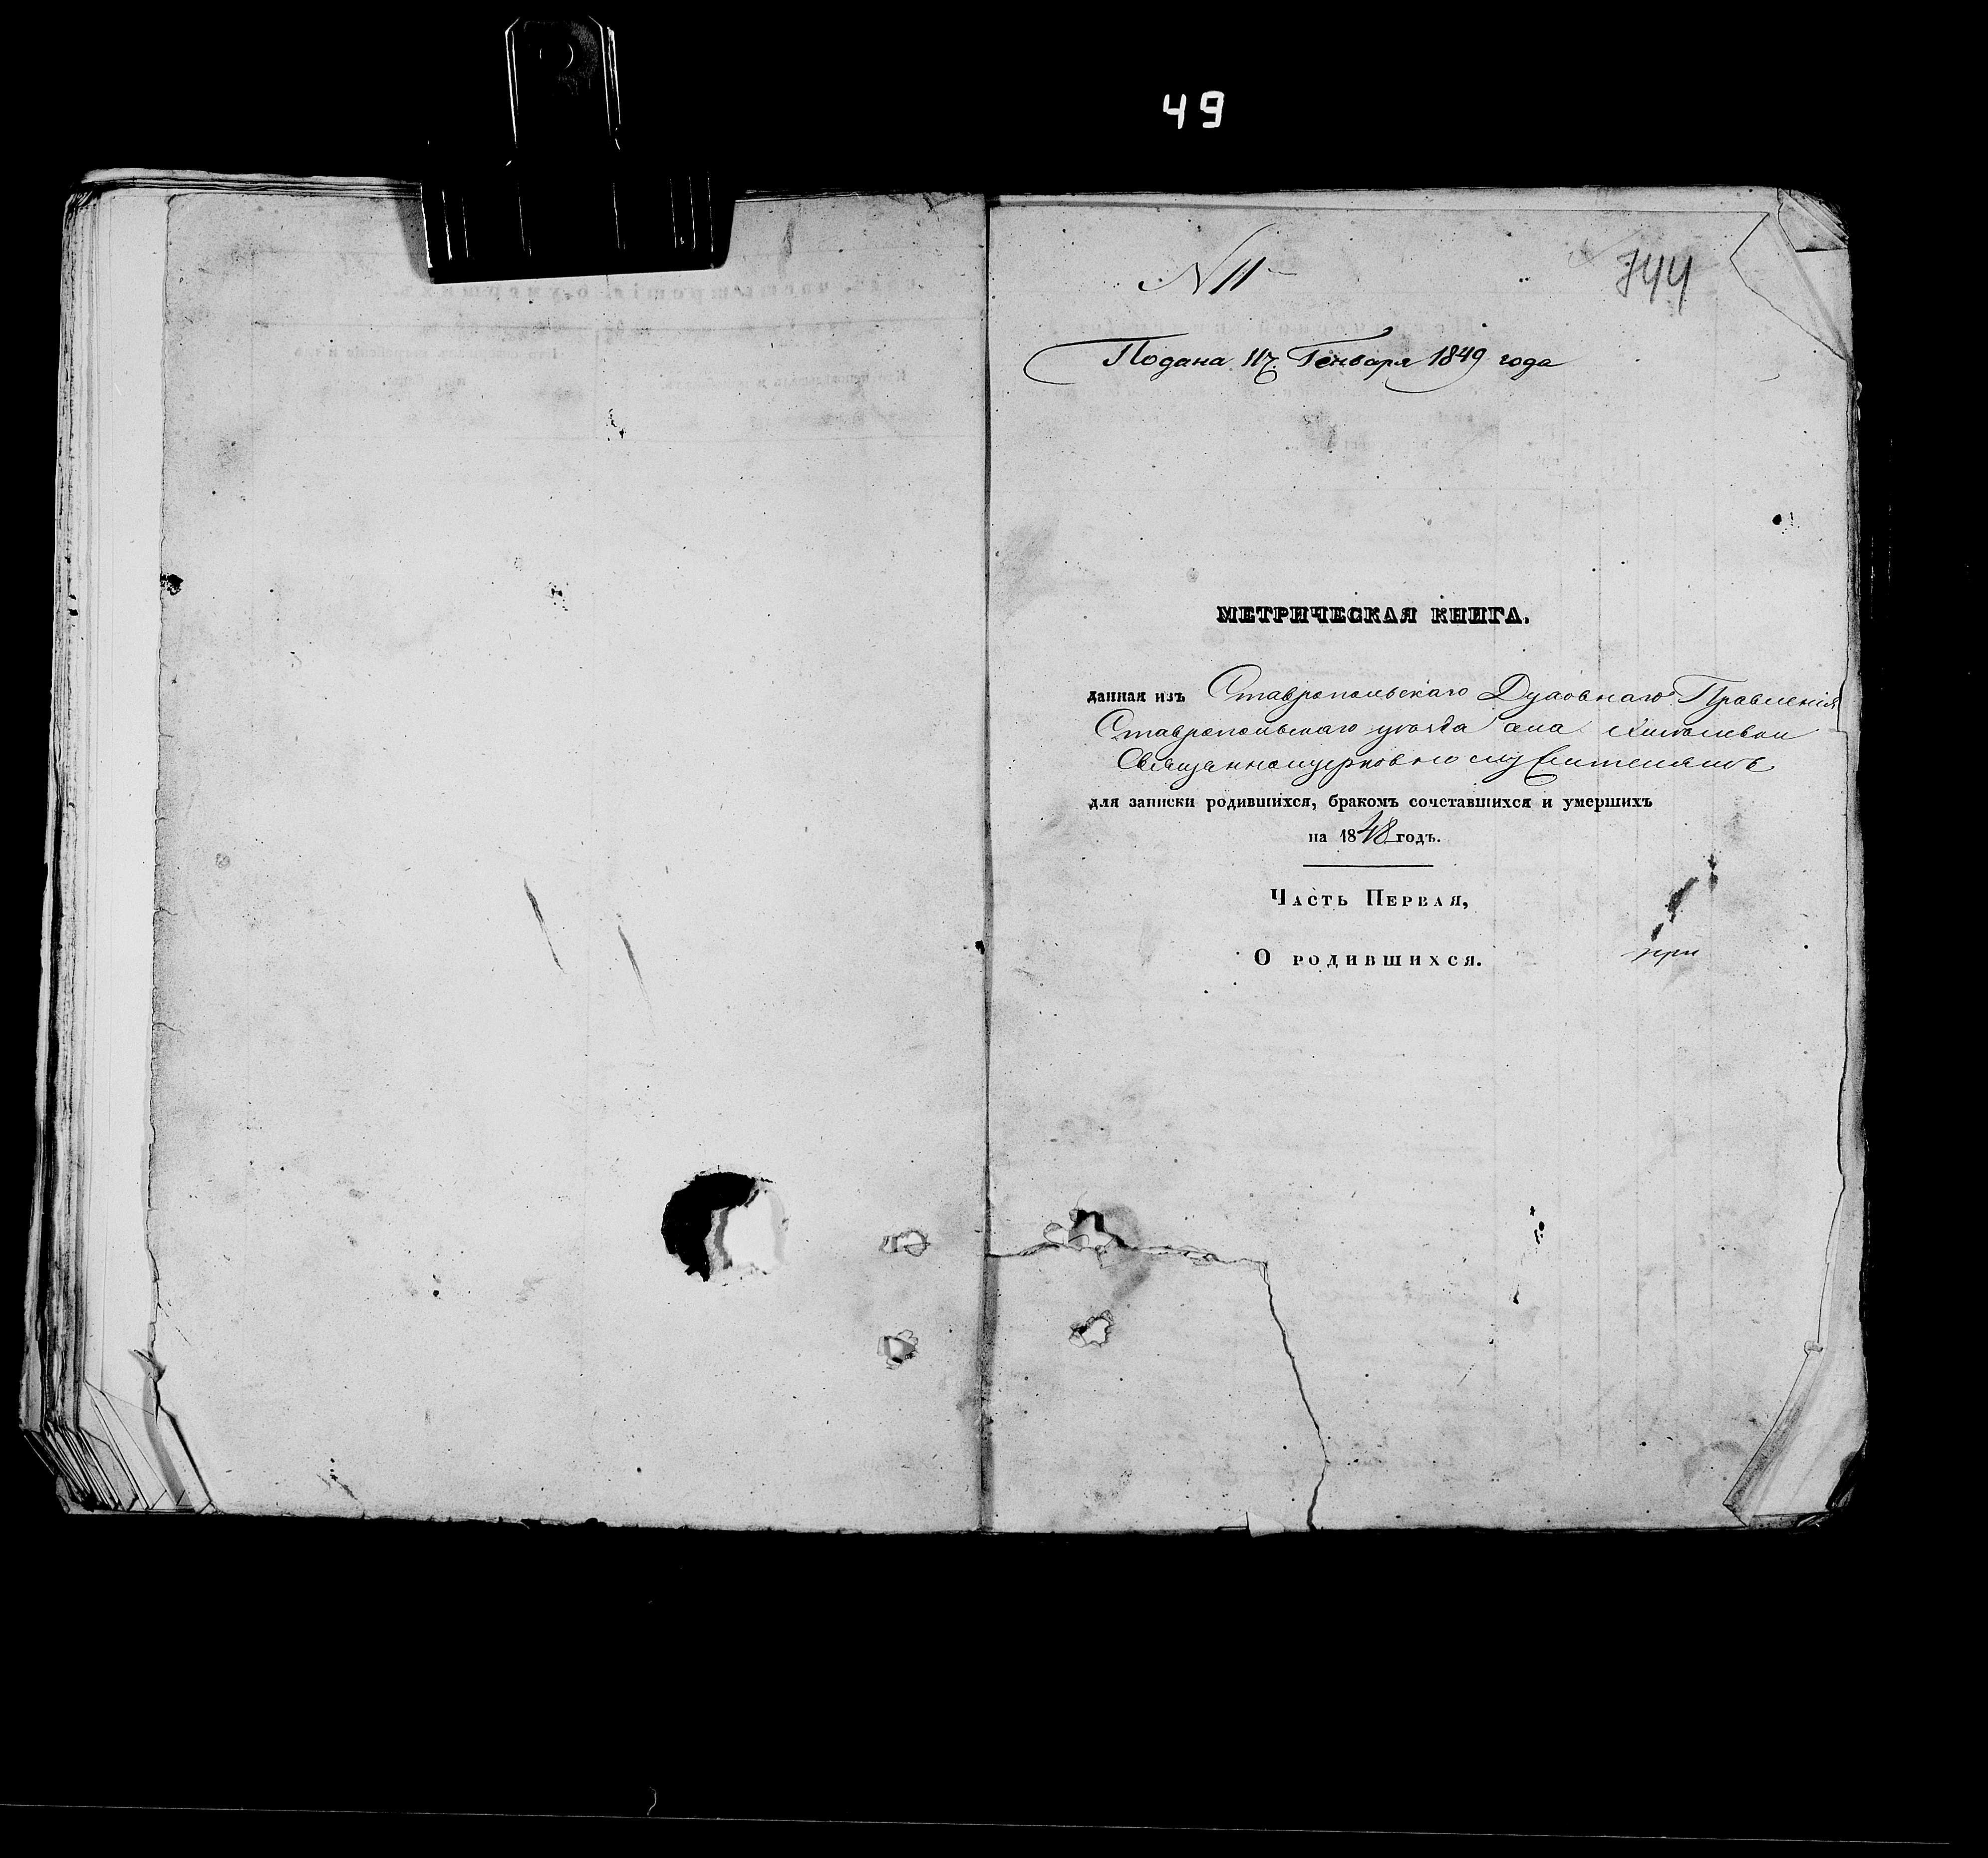 49
N 11
744
Подана 17 Генваря 1849 года
МЕТРИЧЕСКАЯ КНИГА,
данная изъ Ставропольскаго Духовнаго Правленія
Ставропольскаго уѣзда села
Священноцерковно служителямъ
для записки родившихся, бракомъ сочетавшихся и умершихъ
на 1848 годъ.
Часть Первая,
О родившихся.
при